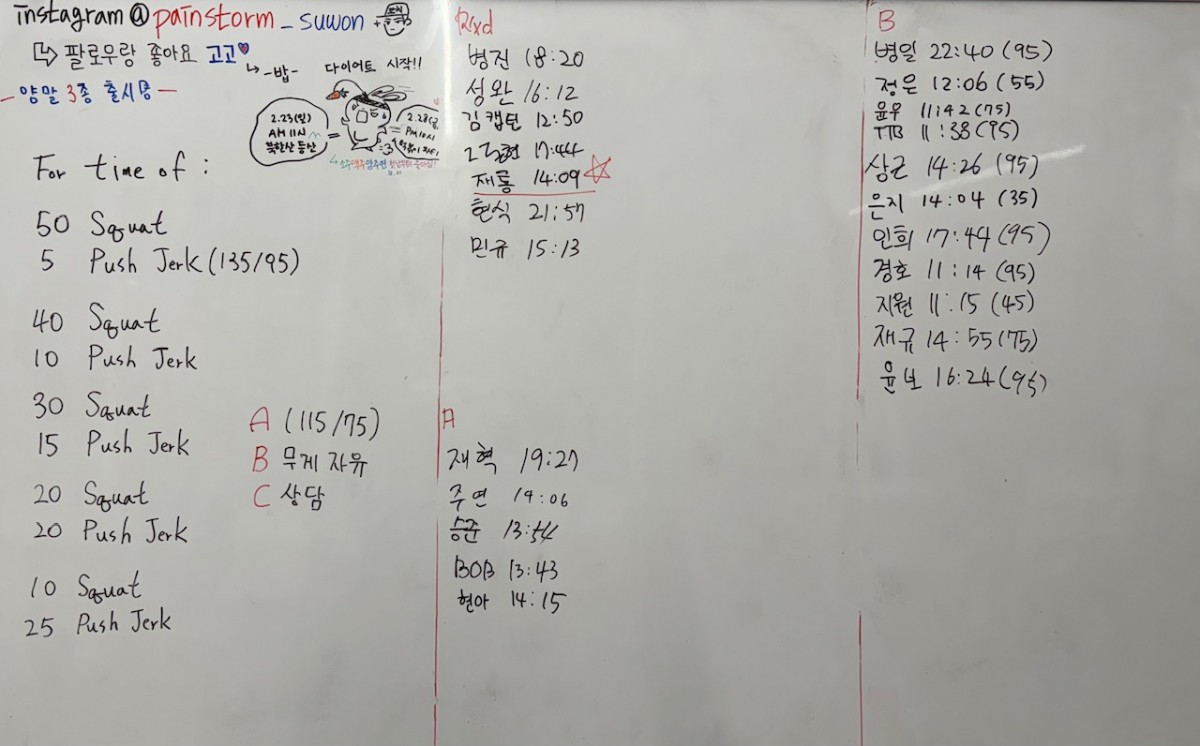 instagram @ painstorm _ suwon +
↳ 팔로우랑 좋아요 고고♥
- 양말 3종 출시롱 -
↳ -밥-
다이어트 시작!!
2.23(일)
AM 11시
북한산 등산
2.28(금)
PM 10시
For time of :
50 Squat
5 Push Jerk (135/95)
40 Squat
10 Push Jerk
30 Squat
15 Push Jerk
20 Squat
20 Push Jerk
10 Squat
25 Push Jerk
A (115/75)
B 무게 자유
C 상담
Rxd
병진 18:20
성완 16:12
김캡틴 12:50
17:44
재통 14:09 ☆
현식 21:57
민규 15:13
A
재혁 19:27
주연 14:06
승준 13:54
BOB 13:43
현아 14:15
B
병일 22:40 (95)
정은 12:06 (55)
윤우 11:42 (75)
TTB 11:38 (95)
상근 14:26 (95)
은지 14:04 (35)
인희 17:44 (95)
경호 11:14 (95)
지원 11:15 (45)
재규 14:55 (75)
윤보 16:24 (95)